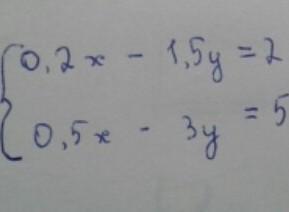 0,2x - 1,5y = 2
0,5x - 3y = 5